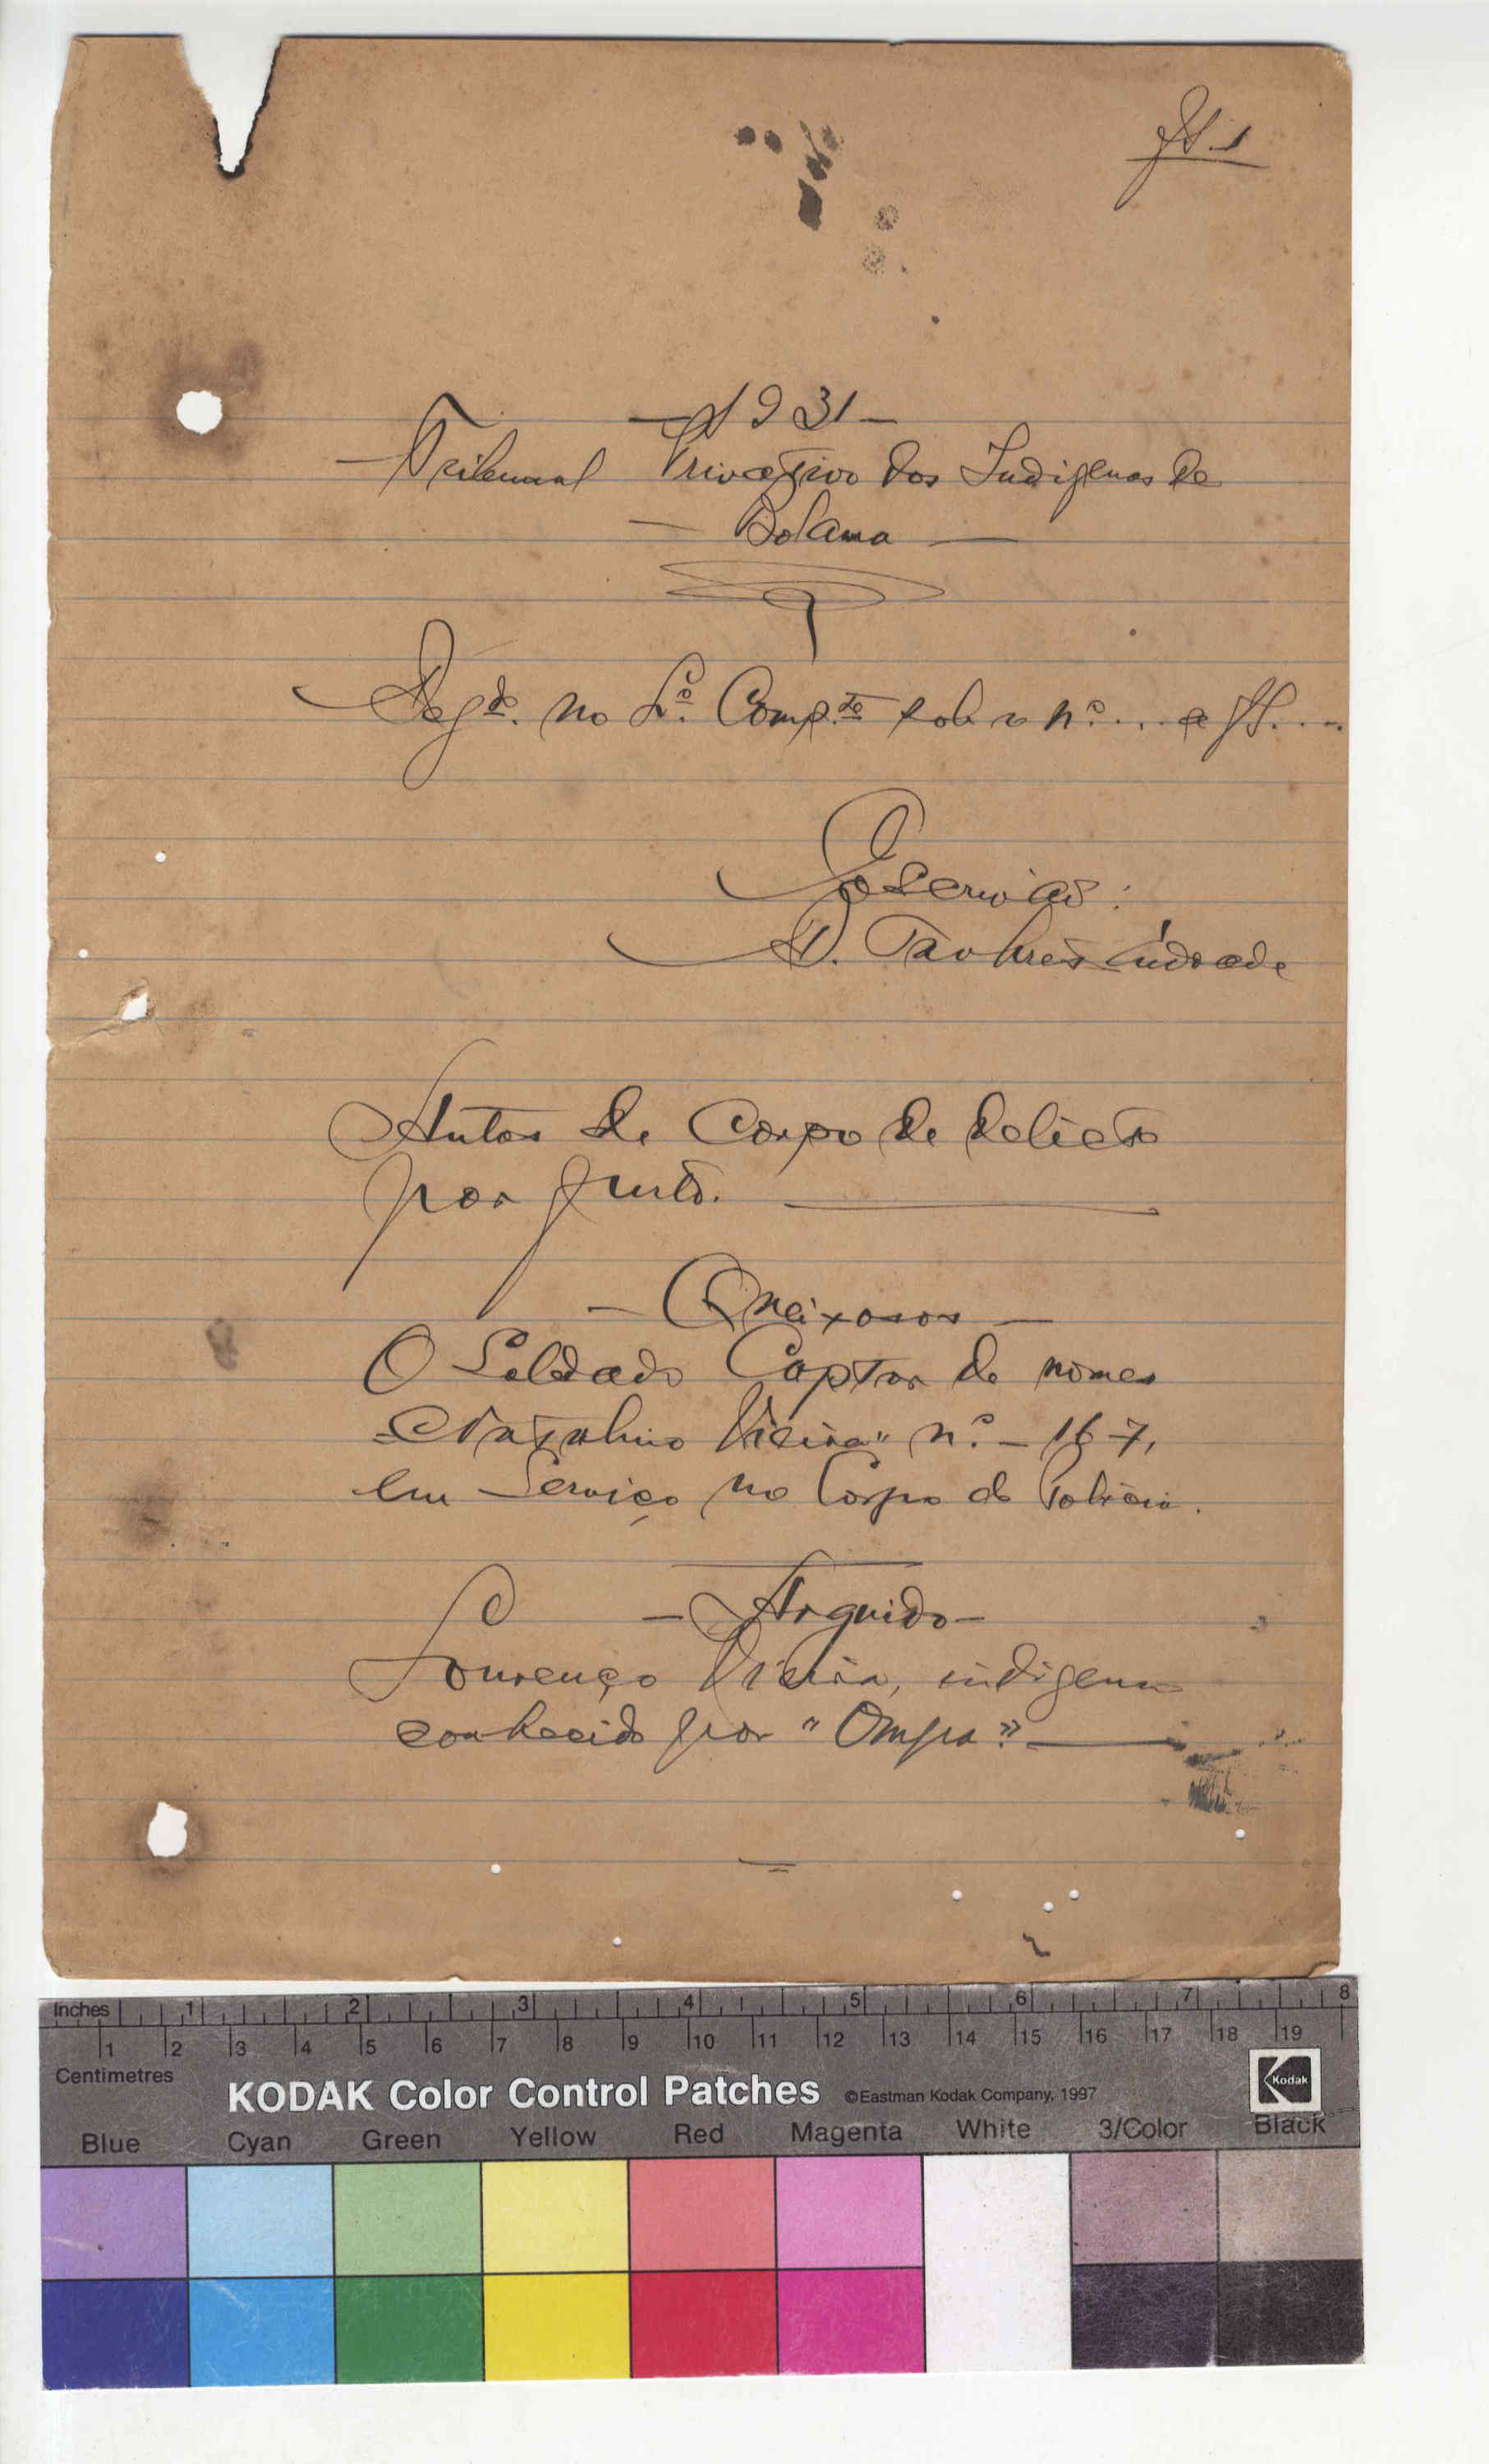 fl. 1
— 1931 —
— Tribunal Privativo dos Indigenas de
— Bolama —
Regdo. no Lo. Compte sob o nº... a fl....
O
Escrivão:
Andrade
Autos de Corpo de delicto
por furto.
— Queixosos —
O Soldado Captor de nomes
Vieira" n.º - 167,
em Serviço no Corpo de Policia.
— Arguido —
O
Lourenço Vieira, indigena
conhecido por "Ompa"
Inches 1 2 3 4 5 6 7 8
1 2 3 4 5 6 7 8 9 10 11 12 13 14 15 16 17 18 19
Centimetres
KODAK Color Control Patches ©Eastman Kodak Company, 1997 Kodak
Blue Cyan Green Yellow Red Magenta White 3/Color Black